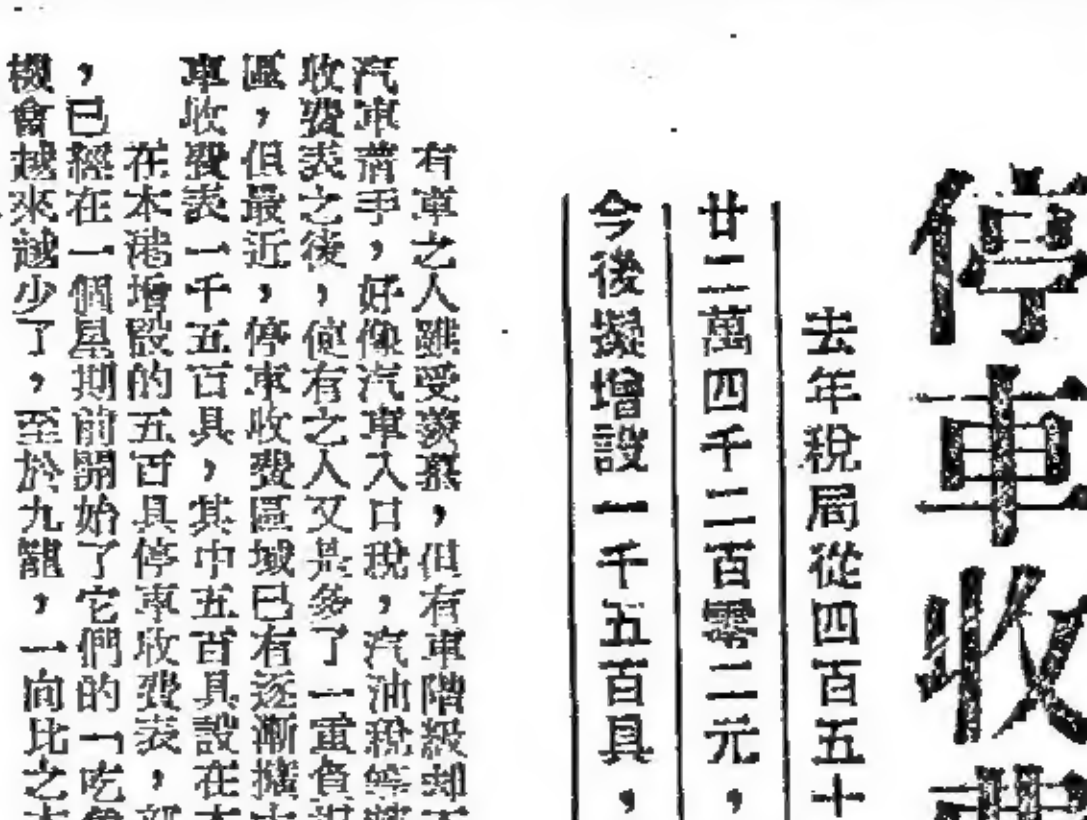 停車收費
去年稅局從四百五十
廿二萬四千二百零二元，
今後擬增設一千五百具，
有車之人雖受羨慕，但有車階級却不
汽車着手，好像汽車入口稅，汽油稅等
收費表之後，使有之人又是多了一重負
區，但最近，停車收費區域已有逐漸擴
車收費表一千五百具，其中五百具設在本
在本港增設的五百具停車收費表，部
，已經在一個星期前開始了它們的「吃
機會越來越少了，至於九龍，一向比之